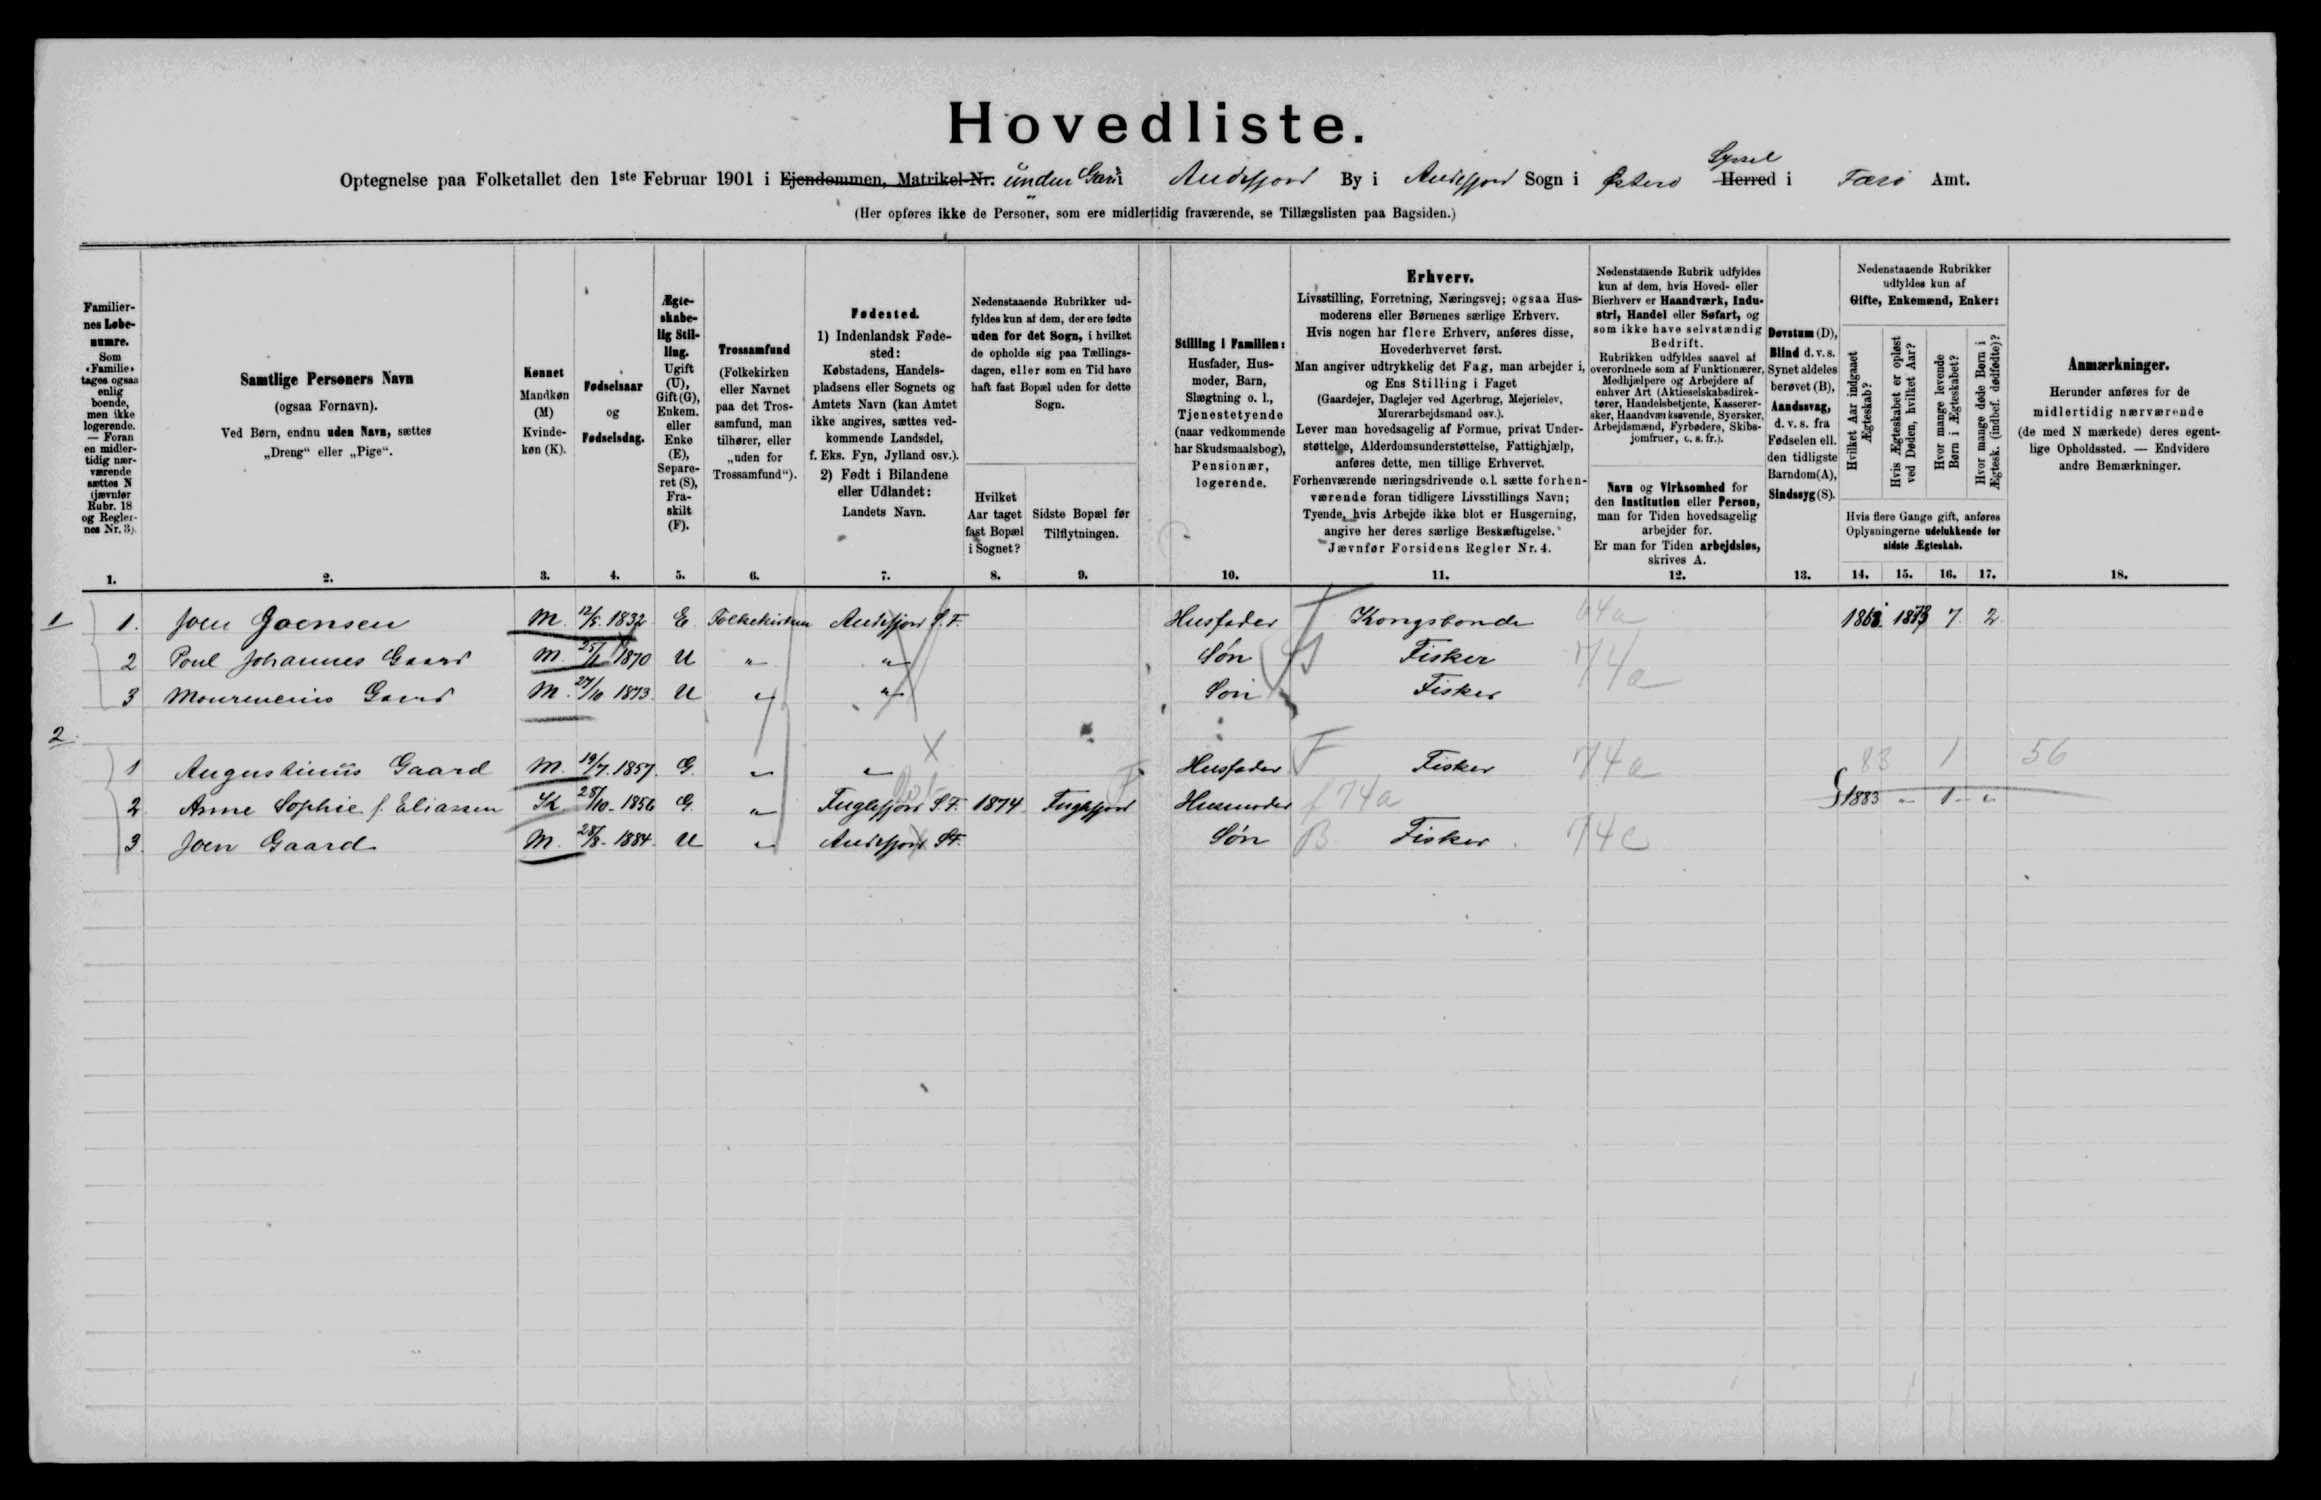 Hovedliste.
Syssel
Optegnelse paa Folketallet den 1ste Februar 1901 i Ejendommen, Matrikel-Nr. under Andefjord By i Andefjord Sogn i Østerø Herred i Færø Amt.
(Her opføres ikke de Personer, som ere midlertidig fraværende, se Tillægslisten paa Bagsiden.)
Familiernes Løbenumre.
Som «Familie» tages ogsaa enlig boende, men ikke logerende. — Foran en midlertidig nærværende sættes N (jævnfør Rubr. 18 og Reglernes Nr. 3).
1.
Samtlige Personers Navn
(ogsaa Fornavn).
Ved Børn, endnu uden Navn, sættes
„Dreng“ eller „Pige“.
2.
Kønnet
Mandkøn (M)
Kvindekøn (K).
3.
Fødselsaar
og
Fødselsdag.
4.
Ægteskabelig Stilling.
Ugift (U), Gift (G), Enkem. eller Enke (E), Separeret (S), Fraskilt (F).
5.
Trossamfund
(Folkekirken eller Navnet paa det Trossamfund, man tilhører, eller „uden for Trossamfund“).
6.
Fødested.
1) Indenlandsk Fødested:
Købstadens, Handelspladsens eller Sognets og Amtets Navn (kan Amtet ikke angives, sættes vedkommende Landsdel, f. Eks. Fyn, Jylland osv.).
2) Født i Bilandene eller Udlandet:
Landets Navn.
7.
Nedenstaaende Rubrikker udfyldes kun af dem, der ere fødte uden for det Sogn, i hvilket de opholde sig paa Tællingsdagen, eller som en Tid have haft fast Bopæl uden for dette Sogn.
Hvilket Aar taget fast Bopæl i Sognet?
8.
Sidste Bopæl før Tilflytningen.
9.
Stilling i Familien:
Husfader, Husmoder, Barn, Slægtning o. l., Tjenestetyende (naar vedkommende har Skudsmaalsbog), Pensionær, logerende.
10.
Erhverv.
Livsstilling, Forretning, Næringsvej; ogsaa Husmoderens eller Børnenes særlige Erhverv.
Hvis nogen har flere Erhverv, anføres disse, Hovederhvervet først.
Man angiver udtrykkelig det Fag, man arbejder i, og Ens Stilling i Faget
(Gaardejer, Daglejer ved Agerbrug, Mejerielev, Murerarbejdsmand osv.).
Lever man hovedsagelig af Formue, privat Understøttelse, Alderdomsunderstøttelse, Fattighjælp, anføres dette, men tillige Erhvervet.
Forhenværende næringsdrivende o.l. sætte forhenværende foran tidligere Livsstillings Navn;
Tyende, hvis Arbejde ikke blot er Husgerning, angive her deres særlige Beskæftigelse.
Jævnfør Forsidens Regler Nr. 4.
11.
Nedenstaaende Rubrik udfyldes kun af dem, hvis Hoved- eller Bierhverv er Haandværk, Industri, Handel eller Søfart, og som ikke have selvstændig Bedrift.
Rubrikken udfyldes saavel af overordnede som af Funktionærer, Medhjælpere og Arbejdere af enhver Art (Aktieselskabsdirektører, Handelsbetjente, Kasserersker, Haandværkssvende, Syersker, Arbejdsmænd, Fyrbødere, Skibsjomfruer, o. s. fr.).
Navn og Virksomhed for den Institution eller Person, man for Tiden hovedsagelig arbejder for.
Er man for Tiden arbejdsløs, skrives A.
12.
Døvstum (D), Blind d. v. s. Synet aldeles berøvet (B), Aandssvag, d. v. s. fra Fødselen ell. den tidligste Barndom (A), Sindssyg (S).
13.
Nedenstaaende Rubrikker udfyldes kun af
Gifte, Enkemænd, Enker:
Hvilket Aar indgaaet Ægteskab?
Hvis Ægteskabet er opløst ved Døden, hvilket Aar?
Hvor mange levende Børn i Ægteskabet?
Hvor mange døde Børn i Ægtesk. (indbef. dødfødte)?
Hvis flere Gange gift, anføres Oplysningerne udelukkende for sidste Ægteskab.
14. 15. 16. 17.
Anmærkninger.
Herunder anføres for de midlertidig nærværende (de med N mærkede) deres egentlige Opholdssted. — Endvidere andre Bemærkninger.
18.
1 1. Joen Joensen M. 12/5. 1832 E Folkekirken Andefjord S.F. Husfader Kongsbonde 64a 1873 7 2
2 Poul Johannes Gaard M. 1870 U " " Søn Fisker 74a
3 Mourenius Gaard M. 27/10 1873. U " " Søn Fisker
2
1 Augustinus Gaard M. 19/7. 1857. G. " " Husfader F Fisker 74a 83 1 56
2. Anne Sophie f. Eliassen K 28/10 - 1856 G. " Fuglefjord S.F. 1874 Fuglefjord Husmoder f 74a 1883 " 1 "
3. Joen Gaard M. 28/8 - 1884. U " Andefjord S.F. Søn B Fisker 74c